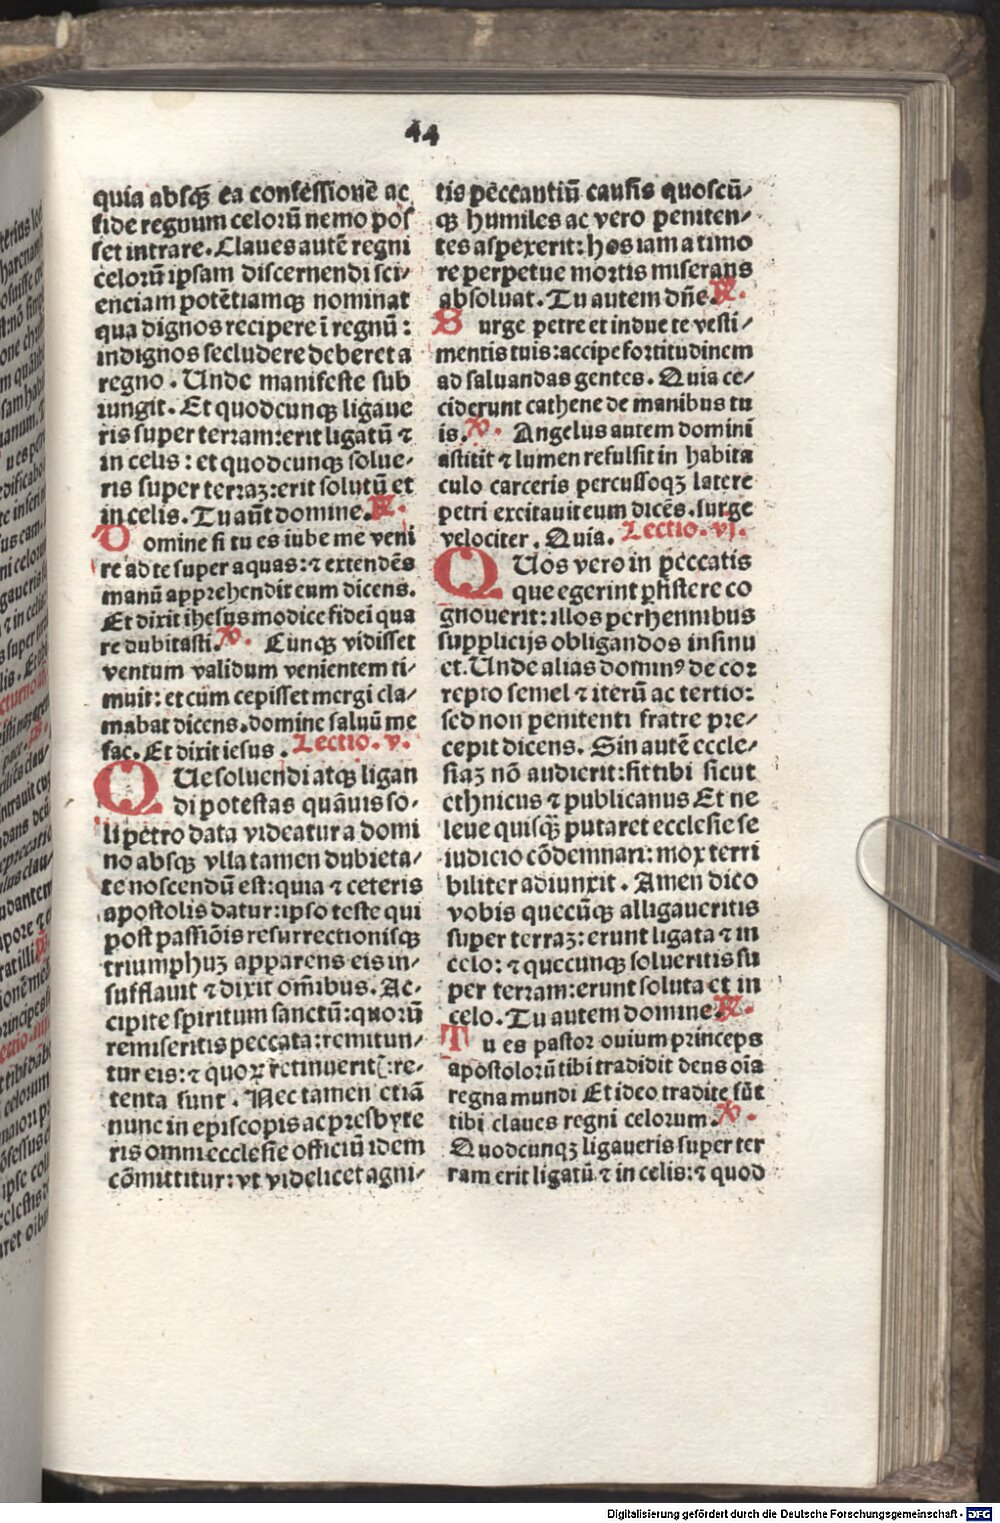 44
quia absq̃ ea confessionē ac
fide regnum celorū nemo pos
set intrare. Claues autē regni
celorū ipsam discernendi sci/
enciam potētiamqꝫ nominat
qua dignos recipere ī regnū:
indignos secludere deberet a
regno. Unde manifeste sub
iungit. Et quodcunqꝫ ligaue
ris super terram: erit ligatū ⁊
in celis: et quodcunqꝫ solue-
ris super terraꝫ: erit solutū et
in celis. Tu aūt domine. ℟.
Domine si tu es iube me veni
re ad te super aquas: ⁊ extendēs
manū apprehendit eum dicens.
Et dixit ihesus modice fidei qua
re dubitasti. ℣. Cunqꝫ vidisset
ventum validum venientem ti-
muit: et cum cepisset mergi cla-
mabat dicens. domine saluū me
fac. Et dixit iesus. Lectio. v.
QUe soluendi atqꝫ ligan
di potestas quāuis so-
li petro data videatur a domi
no absqꝫ vlla tamen dubieta/
te noscendū est: quia ⁊ ceteris
apostolis datur: ipso teste qui
post passiōis resurrectionisqꝫ
triumphuꝫ apparens eis in/
sufflauit ⁊ dixit om̄ibus. Ac-
cipite spiritum sanctū: quorū
remiseritis peccata: remitun/
tur eis: ⁊ quoꝝ retinuerit(: re-
tenta sunt. Nec tamen etiā
nunc in episcopis ac presbyte
ris omni ecclesie officiū idem
cōmittitur: vt videlicet agni/
tis peccantiū causis quoscū/
qꝫ humiles ac vero peniten/
tes aspexerit: hos iam a timo
re perpetue mortis miserans
absoluat. Tu autem dñe. ℟.
Surge petre et indue te vesti/
mentis tuis: accipe fortitudinem
ad saluandas gentes. Quia ce/
ciderunt cathene de manibus tu
is. ℣. Angelus autem domini
astitit ⁊ lumen refulsit in habita
culo carceris percussoqꝫ latere
petri excitauit eum dicēs. surge
velociter. Quia. Lectio. vj.
QUos vero in peccatis
que egerint p̄sistere co
gnouerit: illos perhennibus
supplicijs obligandos insinu
et. Unde alias dominꝰ de cor
repto semel ⁊ iterū ac tertio:
sed non penitenti fratre pre/
cepit dicens. Sin autē eccle/
siaꝫ nō audierit: sit tibi sicut
ethnicus ⁊ publicanus Et ne
leue quisq̃ putaret ecclesie se
iudicio cōdemnari: mox terri
biliter adiunxit. Amen dico
vobis quecūqꝫ alligaueritis
super terraꝫ: erunt ligata ⁊ in
celo: ⁊ quecunqꝫ solueritis su
per terram: erunt soluta et in
celo. Tu autem domine. ℟.
Tu es pastor ouium princeps
apostolorū tibi tradidit deus oīa
regna mundi Et ideo tradite sūt
tibi claues regni celorum. ℣.
Quodcunqꝫ ligaueris super ter
ram erit ligatū ⁊ in celis: ⁊ quod
Digitalisierung gefördert durch die Deutsche Forschungsgemeinschaft - DFG